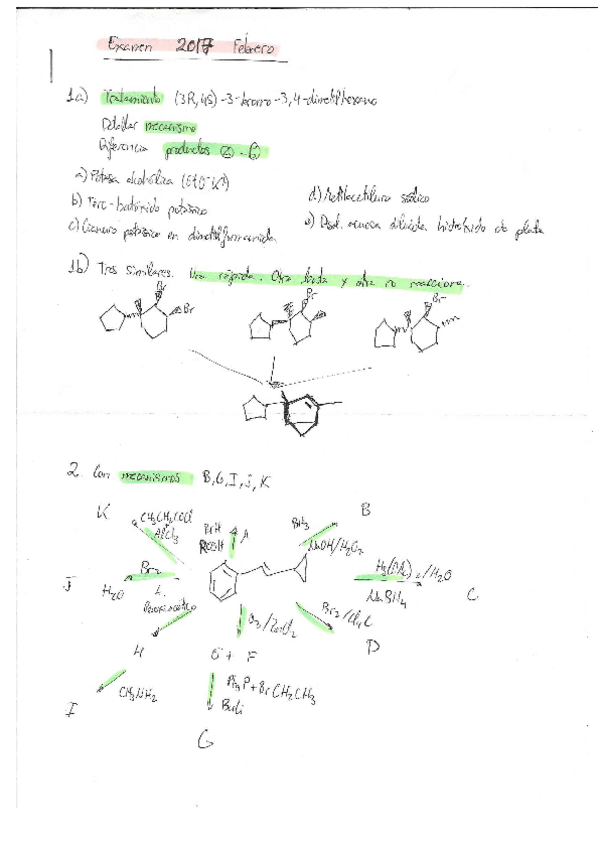 Examen 2017 Febrero
1a) Tratamiento (3R,4S)-3-bromo-3,4-dimetilhexano
Detallar mecanismo
Diferencia productos
a) Potasa alcohólica (EtO⁻K⁺)
b) Terc-butóxido potásico
c) Cianuro potásico en dimetilformamida
d) Metilacetiluro sódico
e) Disol. acuosa diluida hidróxido de plata
1b) Tres similares. Una rápida. Otra lenta y otra no reacciona.
Br
Br
Br
Br
2. Con mecanismos B, G, I, J, K
K
CH3CH2COCl
AlCl3
BrH
ROOH
A
BH3
NaOH/H2O2
B
J
Br2
H2O
/H2O
NaBH4
C
H
O3/
E + F
Br2/Cl4C
D
I
CH3NH2
Ph3P + BrCH2CH3
BuLi
G